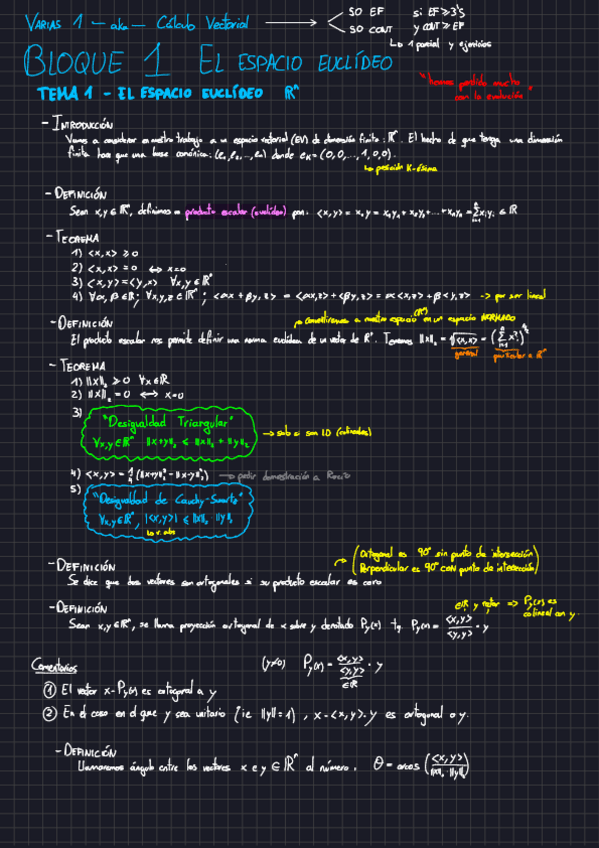 VARIAS 1 - aka - Cálculo Vectorial → 50 EF si EF ≥ 3'5
50 CONT y CONT ≥ EF
↳ 1 parcial y ejercicios
BLOQUE 1 EL ESPACIO EUCLÍDEO
"hemos perdido mucho
con la evolución"
TEMA 1 - EL ESPACIO EUCLÍDEO ℝⁿ
- INTRODUCCIÓN
Vamos a considerar en nuestro trabajo a un espacio vectorial (EV) de dimensión finita: ℝⁿ. El hecho de que tenga una dimensión
finita hace que una base canónica: (e₁, e₂, ..., eₙ) donde eₖ = (0, 0, ..., 1, 0, 0).
↳ posición K-ésima
- DEFINICIÓN
Sean x, y ∈ ℝⁿ, definimos = producto escalar (euclídeo) por: <x, y> = x·y = x₁y₁ + x₂y₂ + ... + xₙyₙ = Σxᵢyᵢ ∈ ℝ
- TEOREMA
1) <x, x> ≥ 0
2) <x, x> = 0 ↔ x=0
3) <x, y> = <y, x> ∀x, y ∈ ℝⁿ
4) ∀α, β ∈ ℝ; ∀x, y, z ∈ ℝⁿ; <αx + βy, z> = <αx, z> + <βy, z> = α<x, z> + β<y, z> → por ser lineal
→ convertiremos a nuestro espacio (ℝⁿ) en un espacio NORMADO
- DEFINICIÓN
El producto escalar nos permite definir una norma euclídea de un vector de ℝⁿ. Tenemos ‖x‖₂ = √<x, x> = (Σxᵢ²)^½
general particular a ℝⁿ
- TEOREMA
1) ‖x‖₂ ≥ 0 ∀x ∈ ℝ
2) ‖x‖₂ = 0 ↔ x=0
3) "Desigualdad Triangular"
∀x, y ∈ ℝⁿ ‖x+y‖₂ ≤ ‖x‖₂ + ‖y‖₂ → solo si son LD
4) <x, y> = ¼(‖x+y‖² - ‖x-y‖²) → pedir demostración a Rocío
5) "Desigualdad de Cauchy-Swartz"
∀x, y ∈ ℝⁿ, |<x, y>| ≤ ‖x‖₂ ‖y‖₂
↳ v. abs
→ (Ortogonal es 90° sin punto de intersección
Perpendicular es 90° con punto de intersección)
- DEFINICIÓN
Se dice que dos vectores son ortogonales si su producto escalar es cero
- DEFINICIÓN
∈ℝ y vector ⇒ Pᵧ(x) es
colineal con y.
Sean x, y ∈ ℝⁿ, se llama proyección ortogonal de x sobre y denotado Pᵧ(x) tq. Pᵧ(x) = <x, y>/<y, y> · y
Comentarios (y≠0) Pᵧ(x) = <x, y>/<y, y> · y
∈ℝ
① El vector x - Pᵧ(x) es ortogonal a y
② En el caso en el que y sea unitario (ie ‖y‖=1), x - <x, y>·y es ortogonal a y.
- DEFINICIÓN
Llamaremos ángulo entre los vectores x e y ∈ ℝⁿ al número: θ = arcos (<x, y>/‖x‖₂ ‖y‖₂)